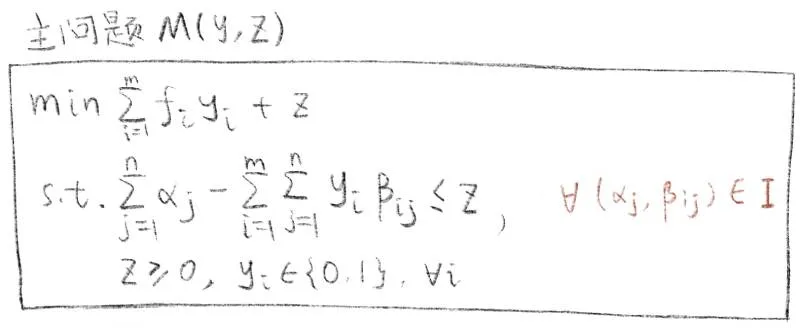 主问题 M(y,z)
min ∑_{i=1}^{m} f_i y_i + z
s.t. ∑_{j=1}^{n} α_j - ∑_{i=1}^{m} ∑_{j=1}^{n} y_i β_{ij} ≤ z, ∀ (α_j, β_{ij}) ∈ I
z ≥ 0, y_i ∈ {0.1}. ∀i